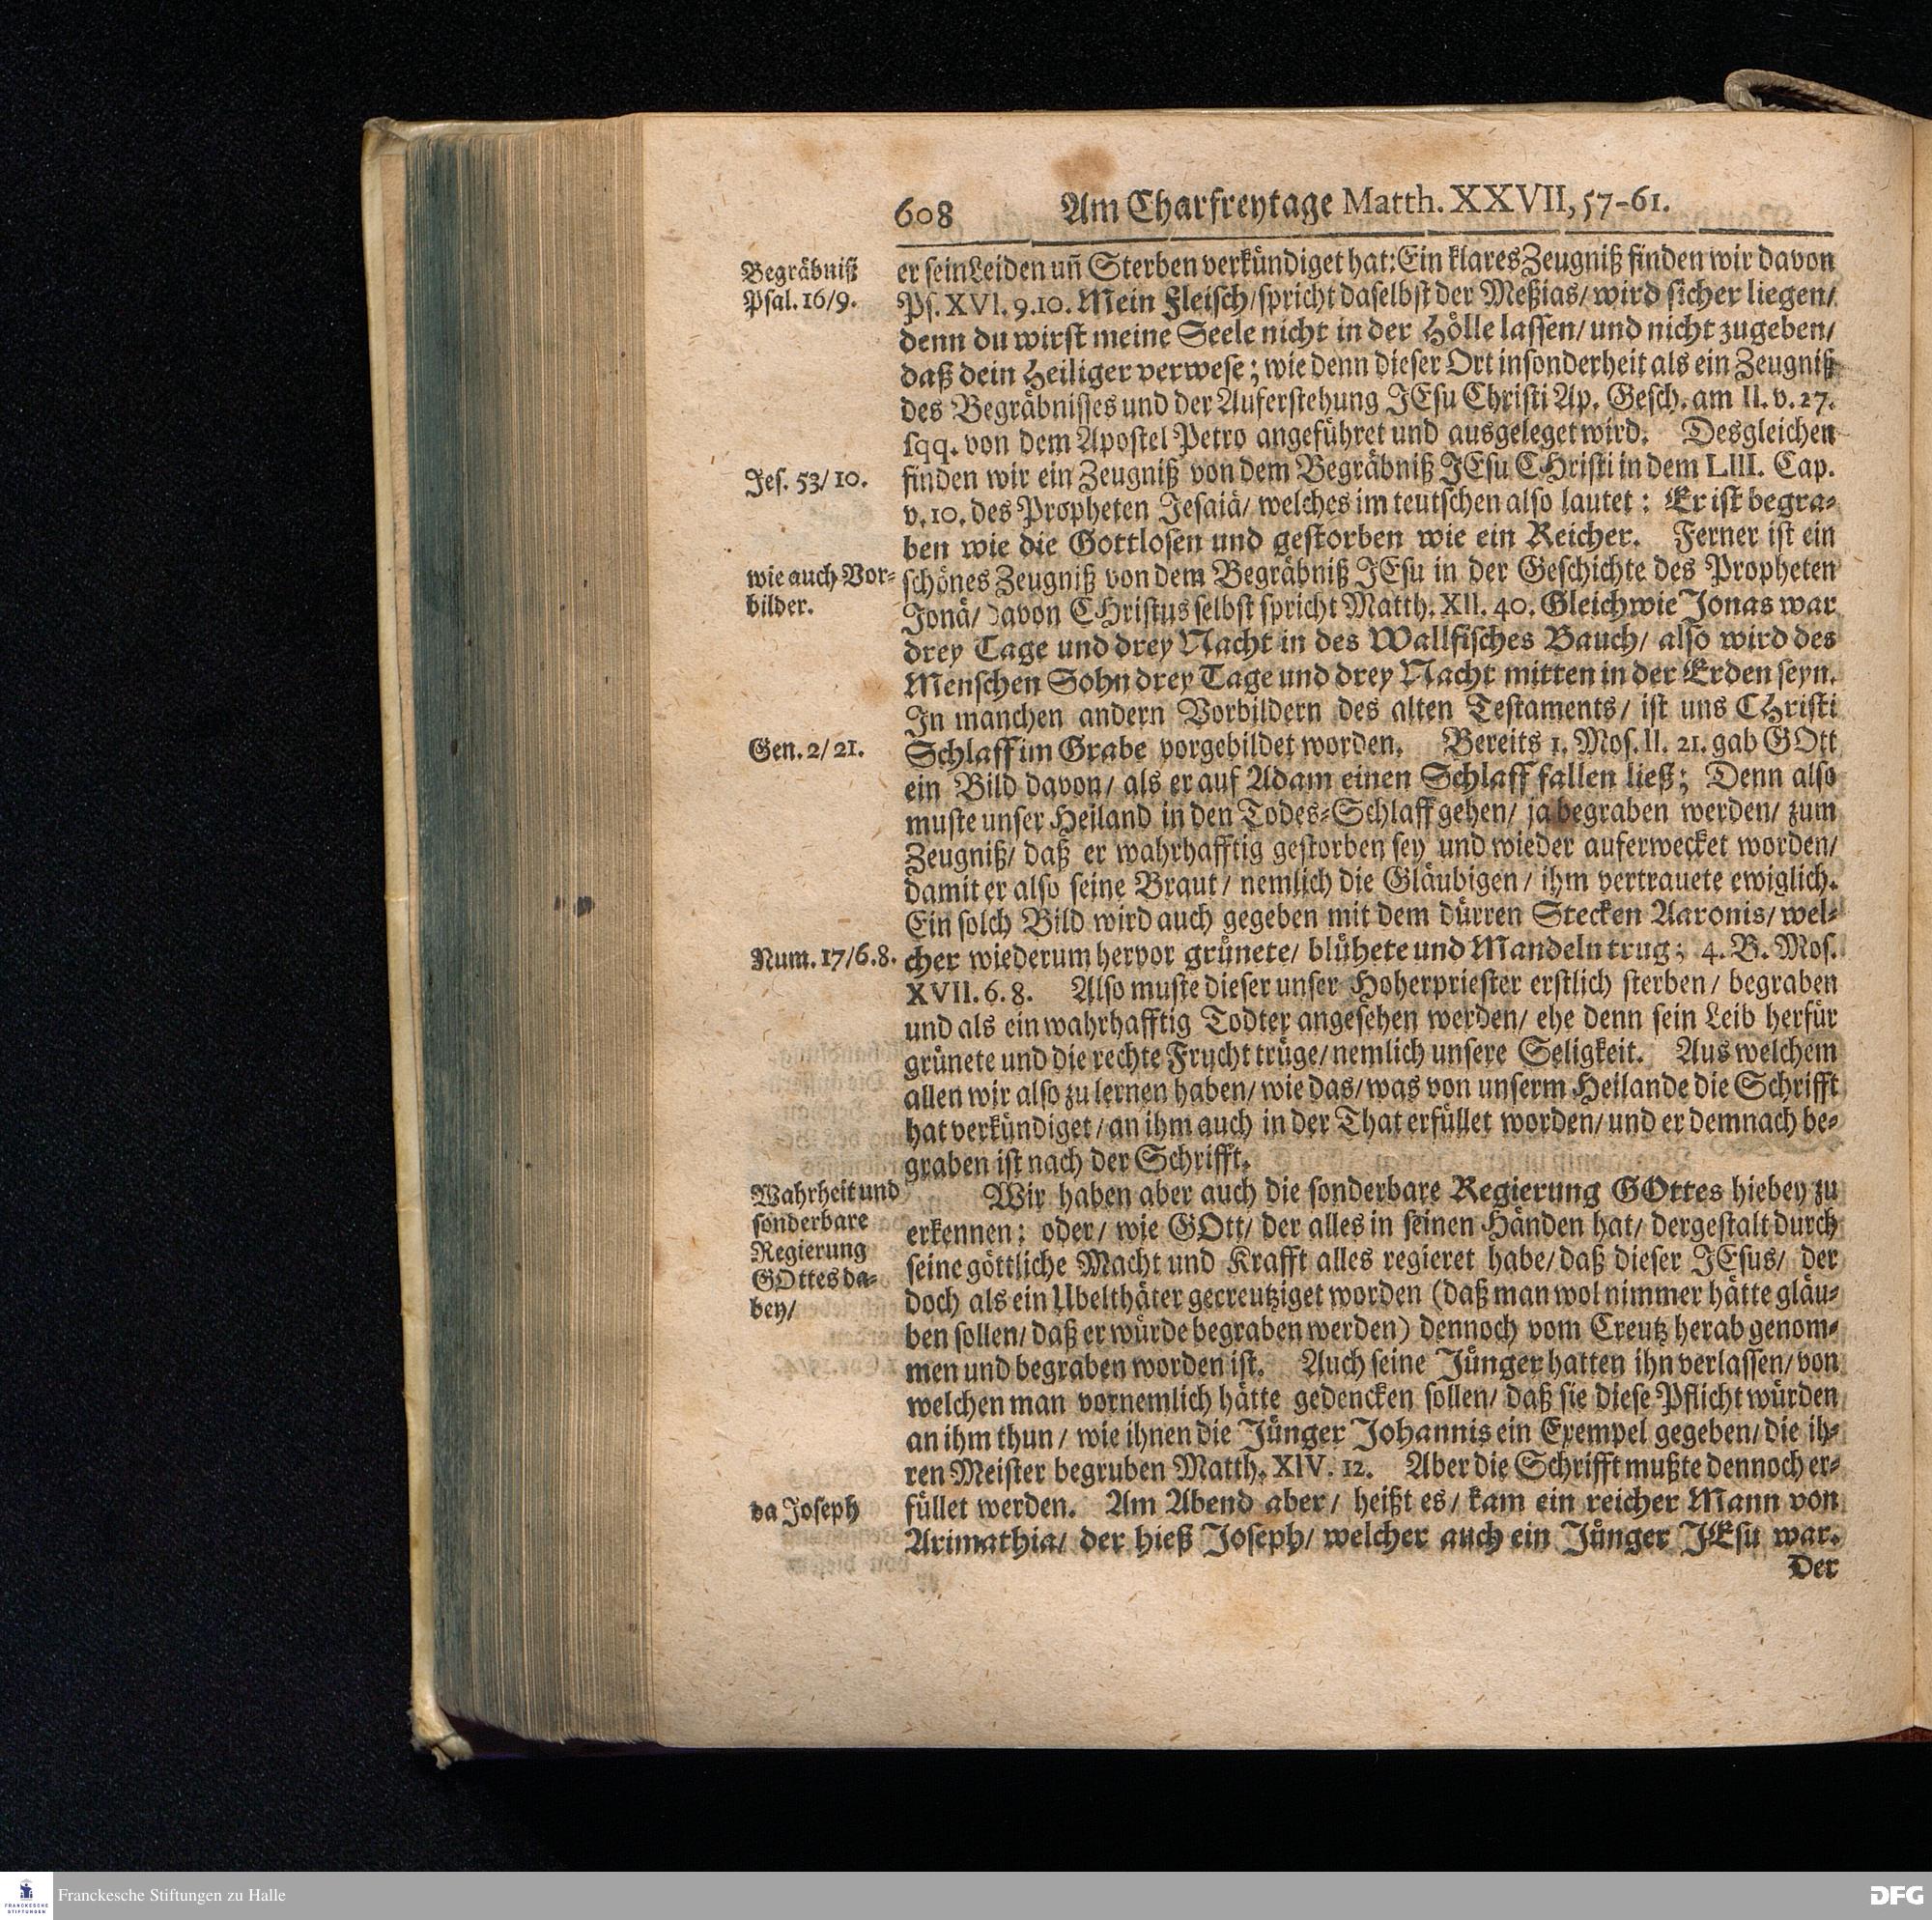 608 Am Charfreytage Matth. XXVII, 57-61.
Begräbniß
Psal. 16/9.
er sein Leiden uñ Sterben verkündiget hat: Ein klares Zeugniß finden wir davon
Ps. XVI. 9. 10. Mein Fleisch/ spricht daselbst der Meßias/ wird sicher liegen/
denn du wirst meine Seele nicht in der Hölle lassen/ und nicht zugeben/
daß dein Heiliger verwese; wie denn dieser Ort insonderheit als ein Zeugniß
des Begräbnisses und der Auferstehung JEsu Christi Ap. Gesch. am II. v. 27.
sqq. von dem Apostel Petro angeführet und ausgeleget wird. Desgleichen
Jes. 53/10.
finden wir ein Zeugniß von dem Begräbniß JEsu CHristi in dem LIII. Cap.
v. 10. des Propheten Jesaiä/ welches im teutschen also lautet: Er ist begra-
ben wie die Gottlosen und gestorben wie ein Reicher. Ferner ist ein
wie auch Vor-
bilder.
schönes Zeugniß von dem Begräbniß JEsu in der Geschichte des Propheten
Jonä/ davon CHristus selbst spricht Matth. XII. 40. Gleichwie Jonas war
drey Tage und drey Nacht in des Wallfisches Bauch/ also wird des
Menschen Sohn drey Tage und drey Nacht mitten in der Erden seyn.
In manchen andern Vorbildern des alten Testaments/ ist uns CHristi
Gen. 2/21.
Schlaff im Grabe vorgebildet worden. Bereits 1. Mos. II. 21. gab GOtt
ein Bild davon/ als er auf Adam einen Schlaff fallen ließ; Denn also
muste unser Heiland in den Todes-Schlaff gehen/ ja begraben werden/ zum
Zeugniß/ daß er wahrhafftig gestorben sey und wieder auferwecket worden/
damit er also seine Braut/ nemlich die Gläubigen/ ihm vertrauete ewiglich.
Ein solch Bild wird auch gegeben mit dem dürren Stecken Aaronis/ wel-
Num. 17/6.8.
cher wiederum hervor grünete/ blühete und Mandeln trug; 4. B. Mos.
XVII. 6. 8. Also muste dieser unser Hoherpriester erstlich sterben/ begraben
und als ein wahrhafftig Todter angesehen werden/ ehe denn sein Leib herfür
grünete und die rechte Frucht trüge/ nemlich unsere Seligkeit. Aus welchem
allen wir also zu lernen haben/ wie das/ was von unserm Heilande die Schrifft
hat verkündiget/ an ihm auch in der That erfüllet worden/ und er demnach be-
graben ist nach der Schrifft.
Wahrheit und
sonderbare
Regierung
GOttes da-
bey/
Wir haben aber auch die sonderbare Regierung GOttes hiebey zu
erkennen; oder/ wie GOtt/ der alles in seinen Händen hat/ dergestalt durch
seine göttliche Macht und Krafft alles regieret habe/ daß dieser JEsus/ der
doch als ein Ubelthäter gecreutziget worden (daß man wol nimmer hätte gläu-
ben sollen/ daß er würde begraben werden) dennoch vom Creutz herab genom-
men und begraben worden ist. Auch seine Jünger hatten ihn verlassen/ von
welchen man vornemlich hätte gedencken sollen/ daß sie diese Pflicht würden
an ihm thun/ wie ihnen die Jünger Johannis ein Exempel gegeben/ die ih-
ren Meister begruben Matth. XIV. 12. Aber die Schrifft mußte dennoch er-
da Joseph
füllet werden. Am Abend aber/ heißt es/ kam ein reicher Mann von
Arimathia/ der hieß Joseph/ welcher auch ein Jünger JEsu war.
Der
FRANCKESCHE STIFTUNGEN
Franckesche Stiftungen zu Halle
DFG